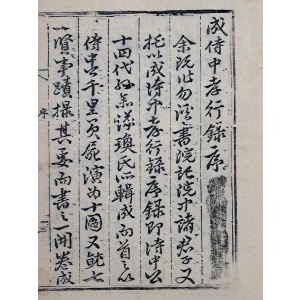 成侍中孝行錄序
余既沿勿溪書院記院中諸君子又
托以成侍中孝行錄序錄即侍中公
十四代孫議瓊氏所輯成而首之以
侍中公千里負屍演為十圖又就七
賢事蹟撮其要而書之一開卷成
序